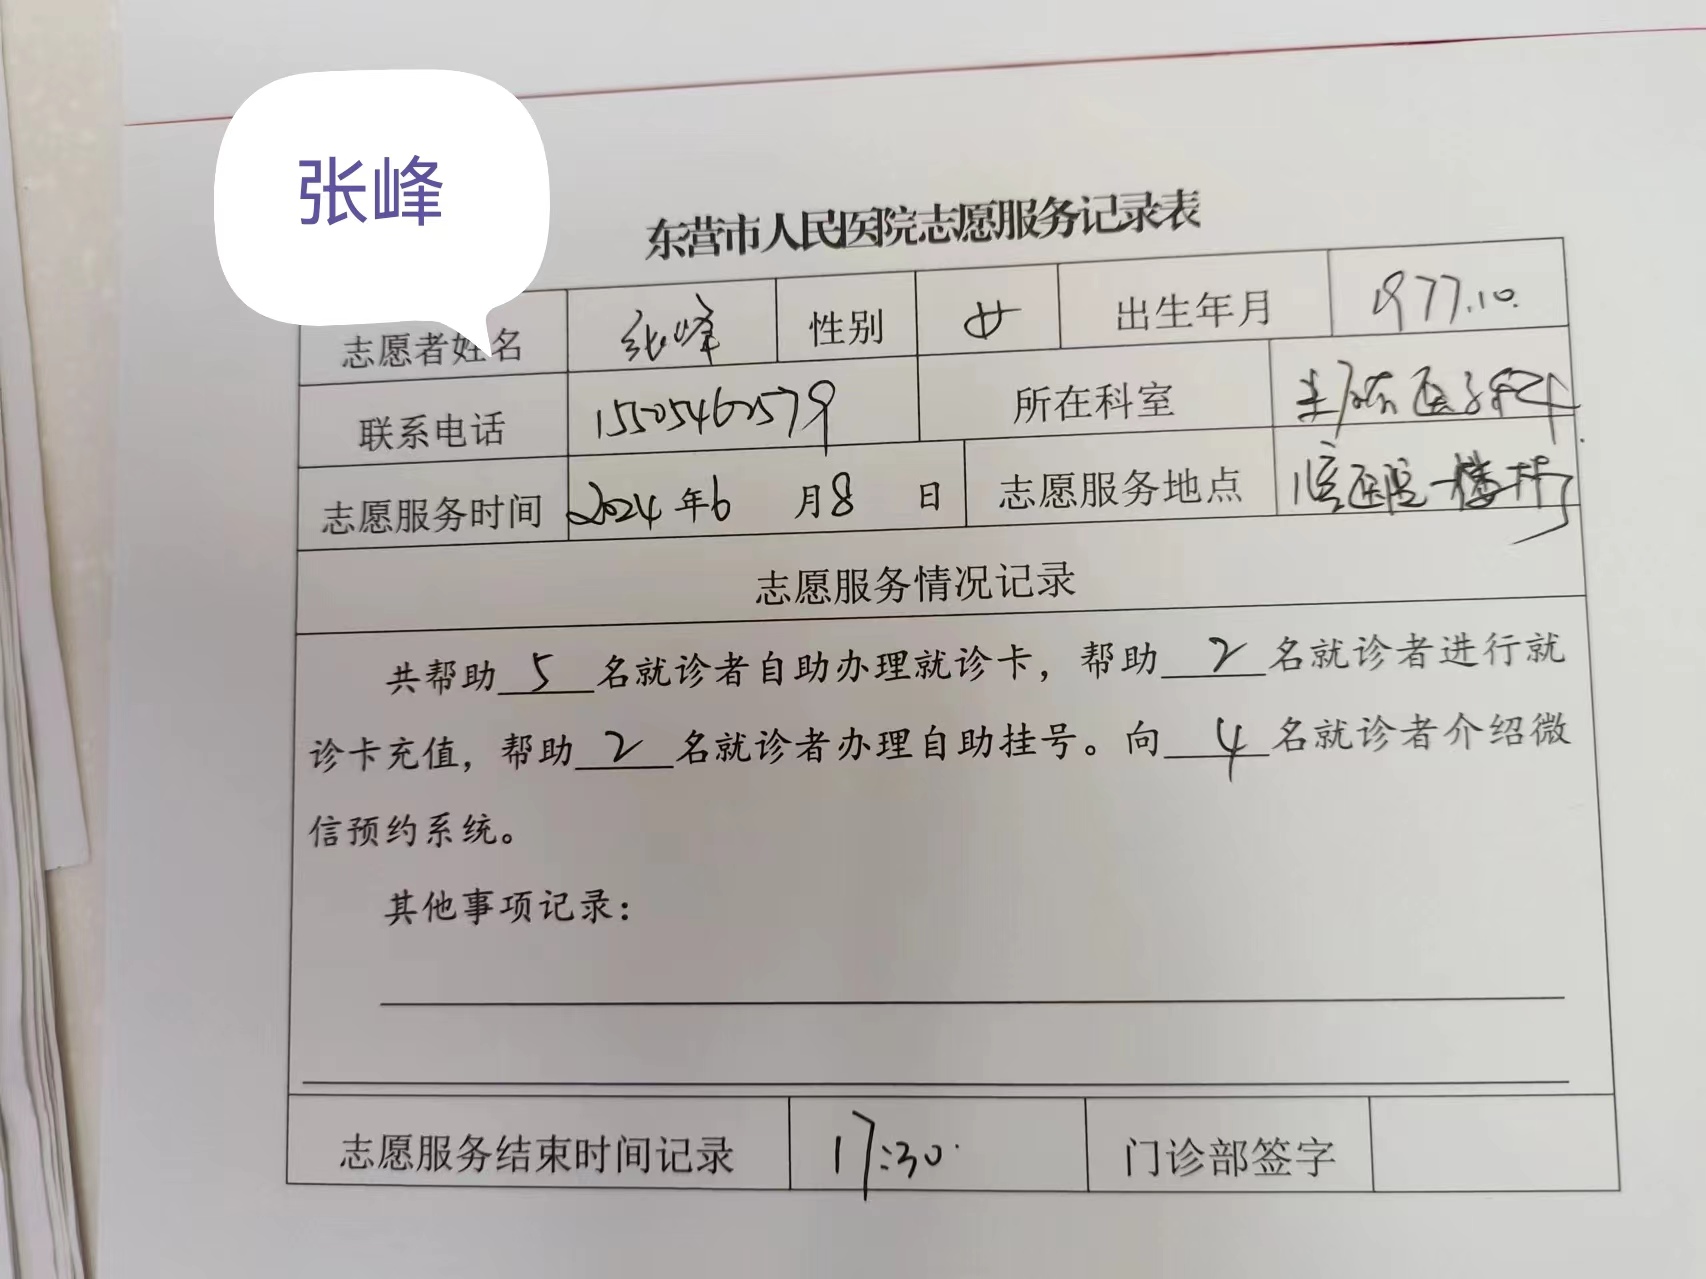 张峰
东营市人民医院志愿服务记录表
志愿者姓名 张峰 性别 女 出生年月 1977.10.
联系电话 15505460579 所在科室
志愿服务时间 2024年6月8日 志愿服务地点 医院一楼
志愿服务情况记录
共帮助 5 名就诊者自助办理就诊卡，帮助 2 名就诊者进行就
诊卡充值，帮助 2 名就诊者办理自助挂号。向 4 名就诊者介绍微
信预约系统。
其他事项记录：
志愿服务结束时间记录 17:30 门诊部签字